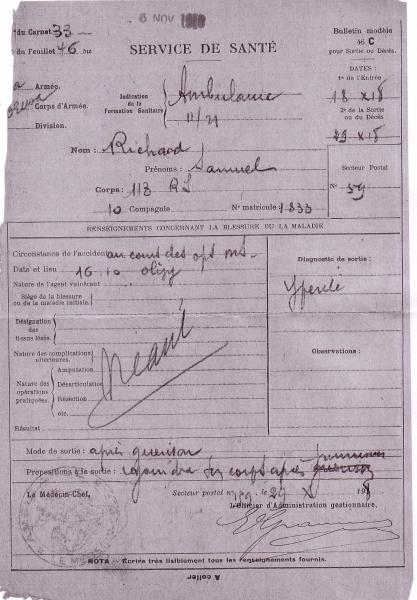 6 NOV
N° du Carnet 33
N° du Feuillet 46 bis
Bulletin modèle
46 C
pour Sortie ou Décès.
SERVICE DE SANTÉ
Armée.
Corps d'Armée.
Division.
Indication
de la
Formation Sanitaire
Ambulance
11/21
DATES :
1° de l'Entrée
18 X 18
2° de la Sortie
ou du Décès
29 X 18
Nom : Richard
Prénoms : Samuel
Corps : 113 R I
10 Compagnie N° matricule : 1833
Secteur Postal
N° 59
RENSEIGNEMENTS CONCERNANT LA BLESSURE OU LA MALADIE
Circonstance de l'accident au cours des opt
Date et lieu 16 10
Nature de l'agent vulnérant
Siège de la blessure
ou de la maladie initiale.
Désignation
des
tissus lésés.
Nature des complications
ultérieures.
Nature des
opérations
pratiquées.
Amputation
Désarticulation
Résection
etc.
Résultat
Néant
Diagnostic de sortie :
Ypérité
Observations :
Mode de sortie : après guérison
Propositions à la sortie : rejoindra son corps après
Le Médecin-Chef, Secteur postal 159, le 29 X 1918
L'Officier d'Administration gestionnaire,
NOTA — Écrire très lisiblement tous les renseignements fournis.
A coller